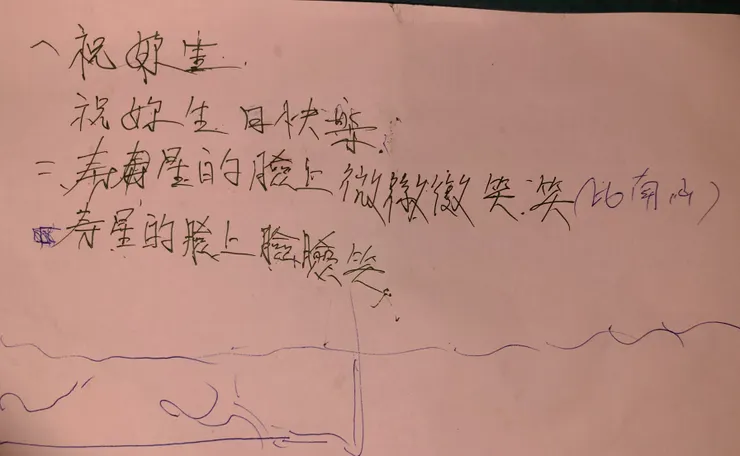 祝妳生
祝妳生日快樂
二、寿壽星的臉上微微微笑笑(比南山)
寿星的臉上臉臉笑